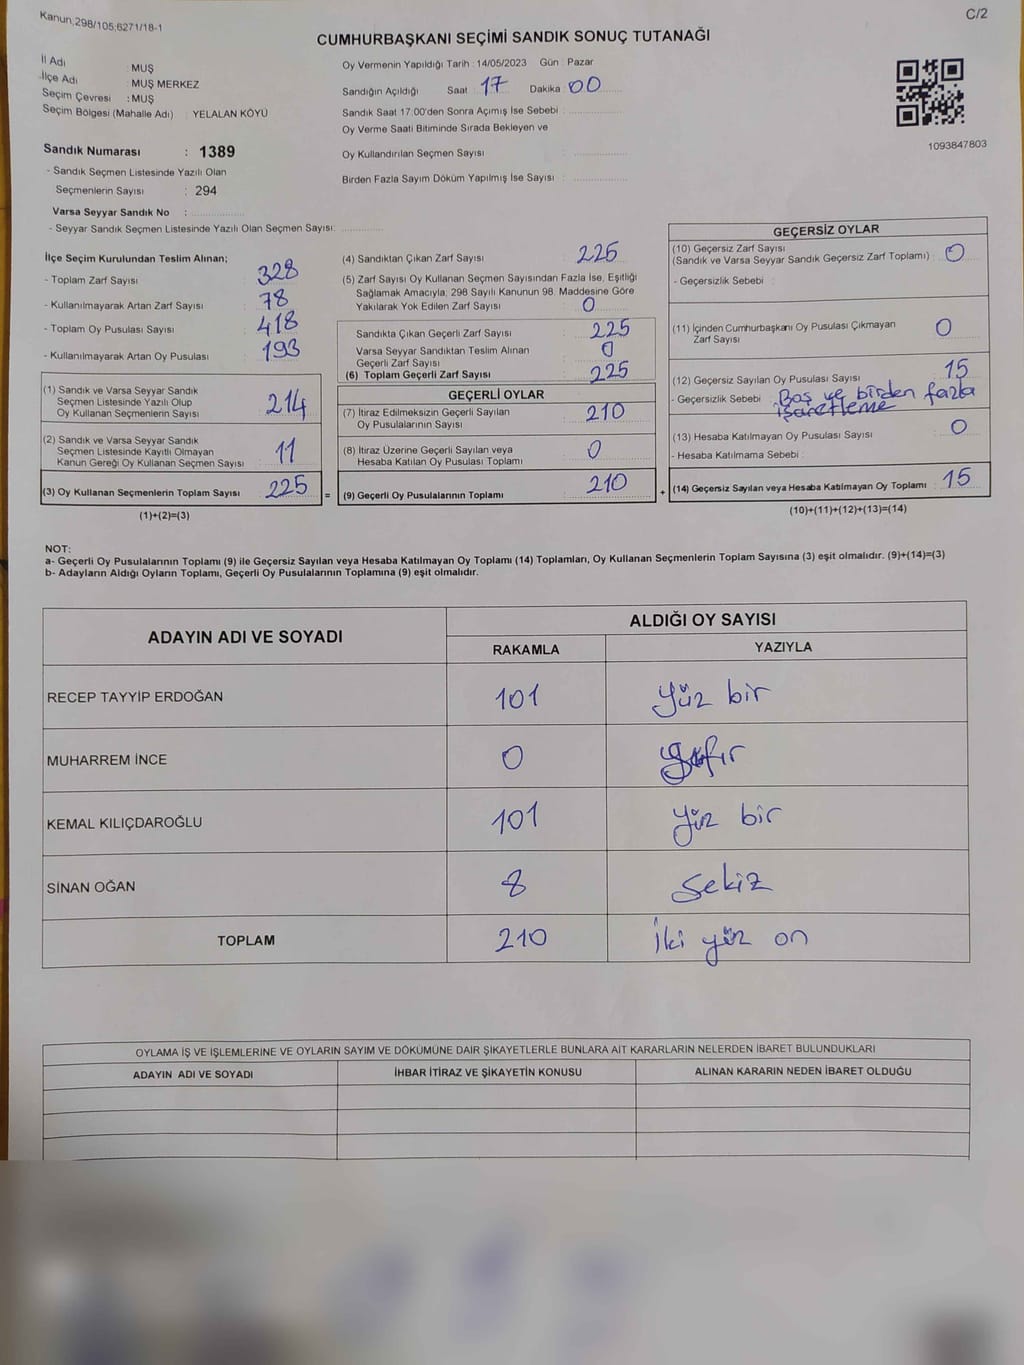 Kanun,298/105;6271/18-1
C/2
CUMHURBAŞKANI SEÇİMİ SANDIK SONUÇ TUTANAĞI
İl Adı : MUŞ
İlçe Adı : MUŞ MERKEZ
Seçim Çevresi : MUŞ
Seçim Bölgesi (Mahalle Adı) : YELALAN KÖYÜ
Sandık Numarası : 1389
- Sandık Seçmen Listesinde Yazılı Olan
Seçmenlerin Sayısı : 294
Varsa Seyyar Sandık No :
- Seyyar Sandık Seçmen Listesinde Yazılı Olan Seçmen Sayısı:
Oy Vermenin Yapıldığı Tarih : 14/05/2023 Gün : Pazar
Sandığın Açıldığı Saat : 17 Dakika : 00
Sandık Saat 17:00'den Sonra Açımış İse Sebebi :
Oy Verme Saati Bitiminde Sırada Bekleyen ve
Oy Kullandırılan Seçmen Sayısı :
Birden Fazla Sayım Döküm Yapılmış İse Sayısı :
1093847803
İlçe Seçim Kurulundan Teslim Alınan;
- Toplam Zarf Sayısı : 328
- Kullanılmayarak Artan Zarf Sayısı : 78
- Toplam Oy Pusulası Sayısı : 418
- Kullanılmayarak Artan Oy Pusulası : 193
(1) Sandık ve Varsa Seyyar Sandık
Seçmen Listesinde Yazılı Olup
Oy Kullanan Seçmenlerin Sayısı : 214
(2) Sandık ve Varsa Seyyar Sandık
Seçmen Listesinde Kayıtlı Olmayan
Kanun Gereği Oy Kullanan Seçmen Sayısı : 11
(3) Oy Kullanan Seçmenlerin Toplam Sayısı : 225
(1)+(2)=(3)
=
(4) Sandıktan Çıkan Zarf Sayısı : 225
(5) Zarf Sayısı Oy Kullanan Seçmen Sayısından Fazla İse, Eşitliği
Sağlamak Amacıyla, 298 Sayılı Kanunun 98. Maddesine Göre
Yakılarak Yok Edilen Zarf Sayısı : 0
Sandıkta Çıkan Geçerli Zarf Sayısı : 225
Varsa Seyyar Sandıktan Teslim Alınan
Geçerli Zarf Sayısı : 0
(6) Toplam Geçerli Zarf Sayısı : 225
GEÇERLİ OYLAR
(7) İtiraz Edilmeksizin Geçerli Sayılan
Oy Pusulalarının Sayısı : 210
(8) İtiraz Üzerine Geçerli Sayılan veya
Hesaba Katılan Oy Pusulası Toplamı : 0
(9) Geçerli Oy Pusulalarının Toplamı : 210
+
GEÇERSİZ OYLAR
(10) Geçersiz Zarf Sayısı
(Sandık ve Varsa Seyyar Sandık Geçersiz Zarf Toplamı) : 0
- Geçersizlik Sebebi :
(11) İçinden Cumhurbaşkanı Oy Pusulası Çıkmayan
Zarf Sayısı : 0
(12) Geçersiz Sayılan Oy Pusulası Sayısı : 15
- Geçersizlik Sebebi : Boş ve birden fazla
işaretleme
(13) Hesaba Katılmayan Oy Pusulası Sayısı : 0
- Hesaba Katılmama Sebebi :
(14) Geçersiz Sayılan veya Hesaba Katılmayan Oy Toplamı : 15
(10)+(11)+(12)+(13)=(14)
NOT:
a- Geçerli Oy Pusulalarının Toplamı (9) ile Geçersiz Sayılan veya Hesaba Katılmayan Oy Toplamı (14) Toplamları, Oy Kullanan Seçmenlerin Toplam Sayısına (3) eşit olmalıdır. (9)+(14)=(3)
b- Adayların Aldığı Oyların Toplamı, Geçerli Oy Pusulalarının Toplamına (9) eşit olmalıdır.
ADAYIN ADI VE SOYADI
ALDIĞI OY SAYISI
RAKAMLA YAZIYLA
RECEP TAYYİP ERDOĞAN 101 Yüz bir
MUHARREM İNCE 0 Sıfır
KEMAL KILIÇDAROĞLU 101 Yüz bir
SİNAN OĞAN 8 Sekiz
TOPLAM 210 İki yüz on
OYLAMA İŞ VE İŞLEMLERİNE VE OYLARIN SAYIM VE DÖKÜMÜNE DAİR ŞİKAYETLERLE BUNLARA AİT KARARLARIN NELERDEN İBARET BULUNDUKLARI
ADAYIN ADI VE SOYADI İHBAR İTİRAZ VE ŞİKAYETİN KONUSU ALINAN KARARIN NEDEN İBARET OLDUĞU